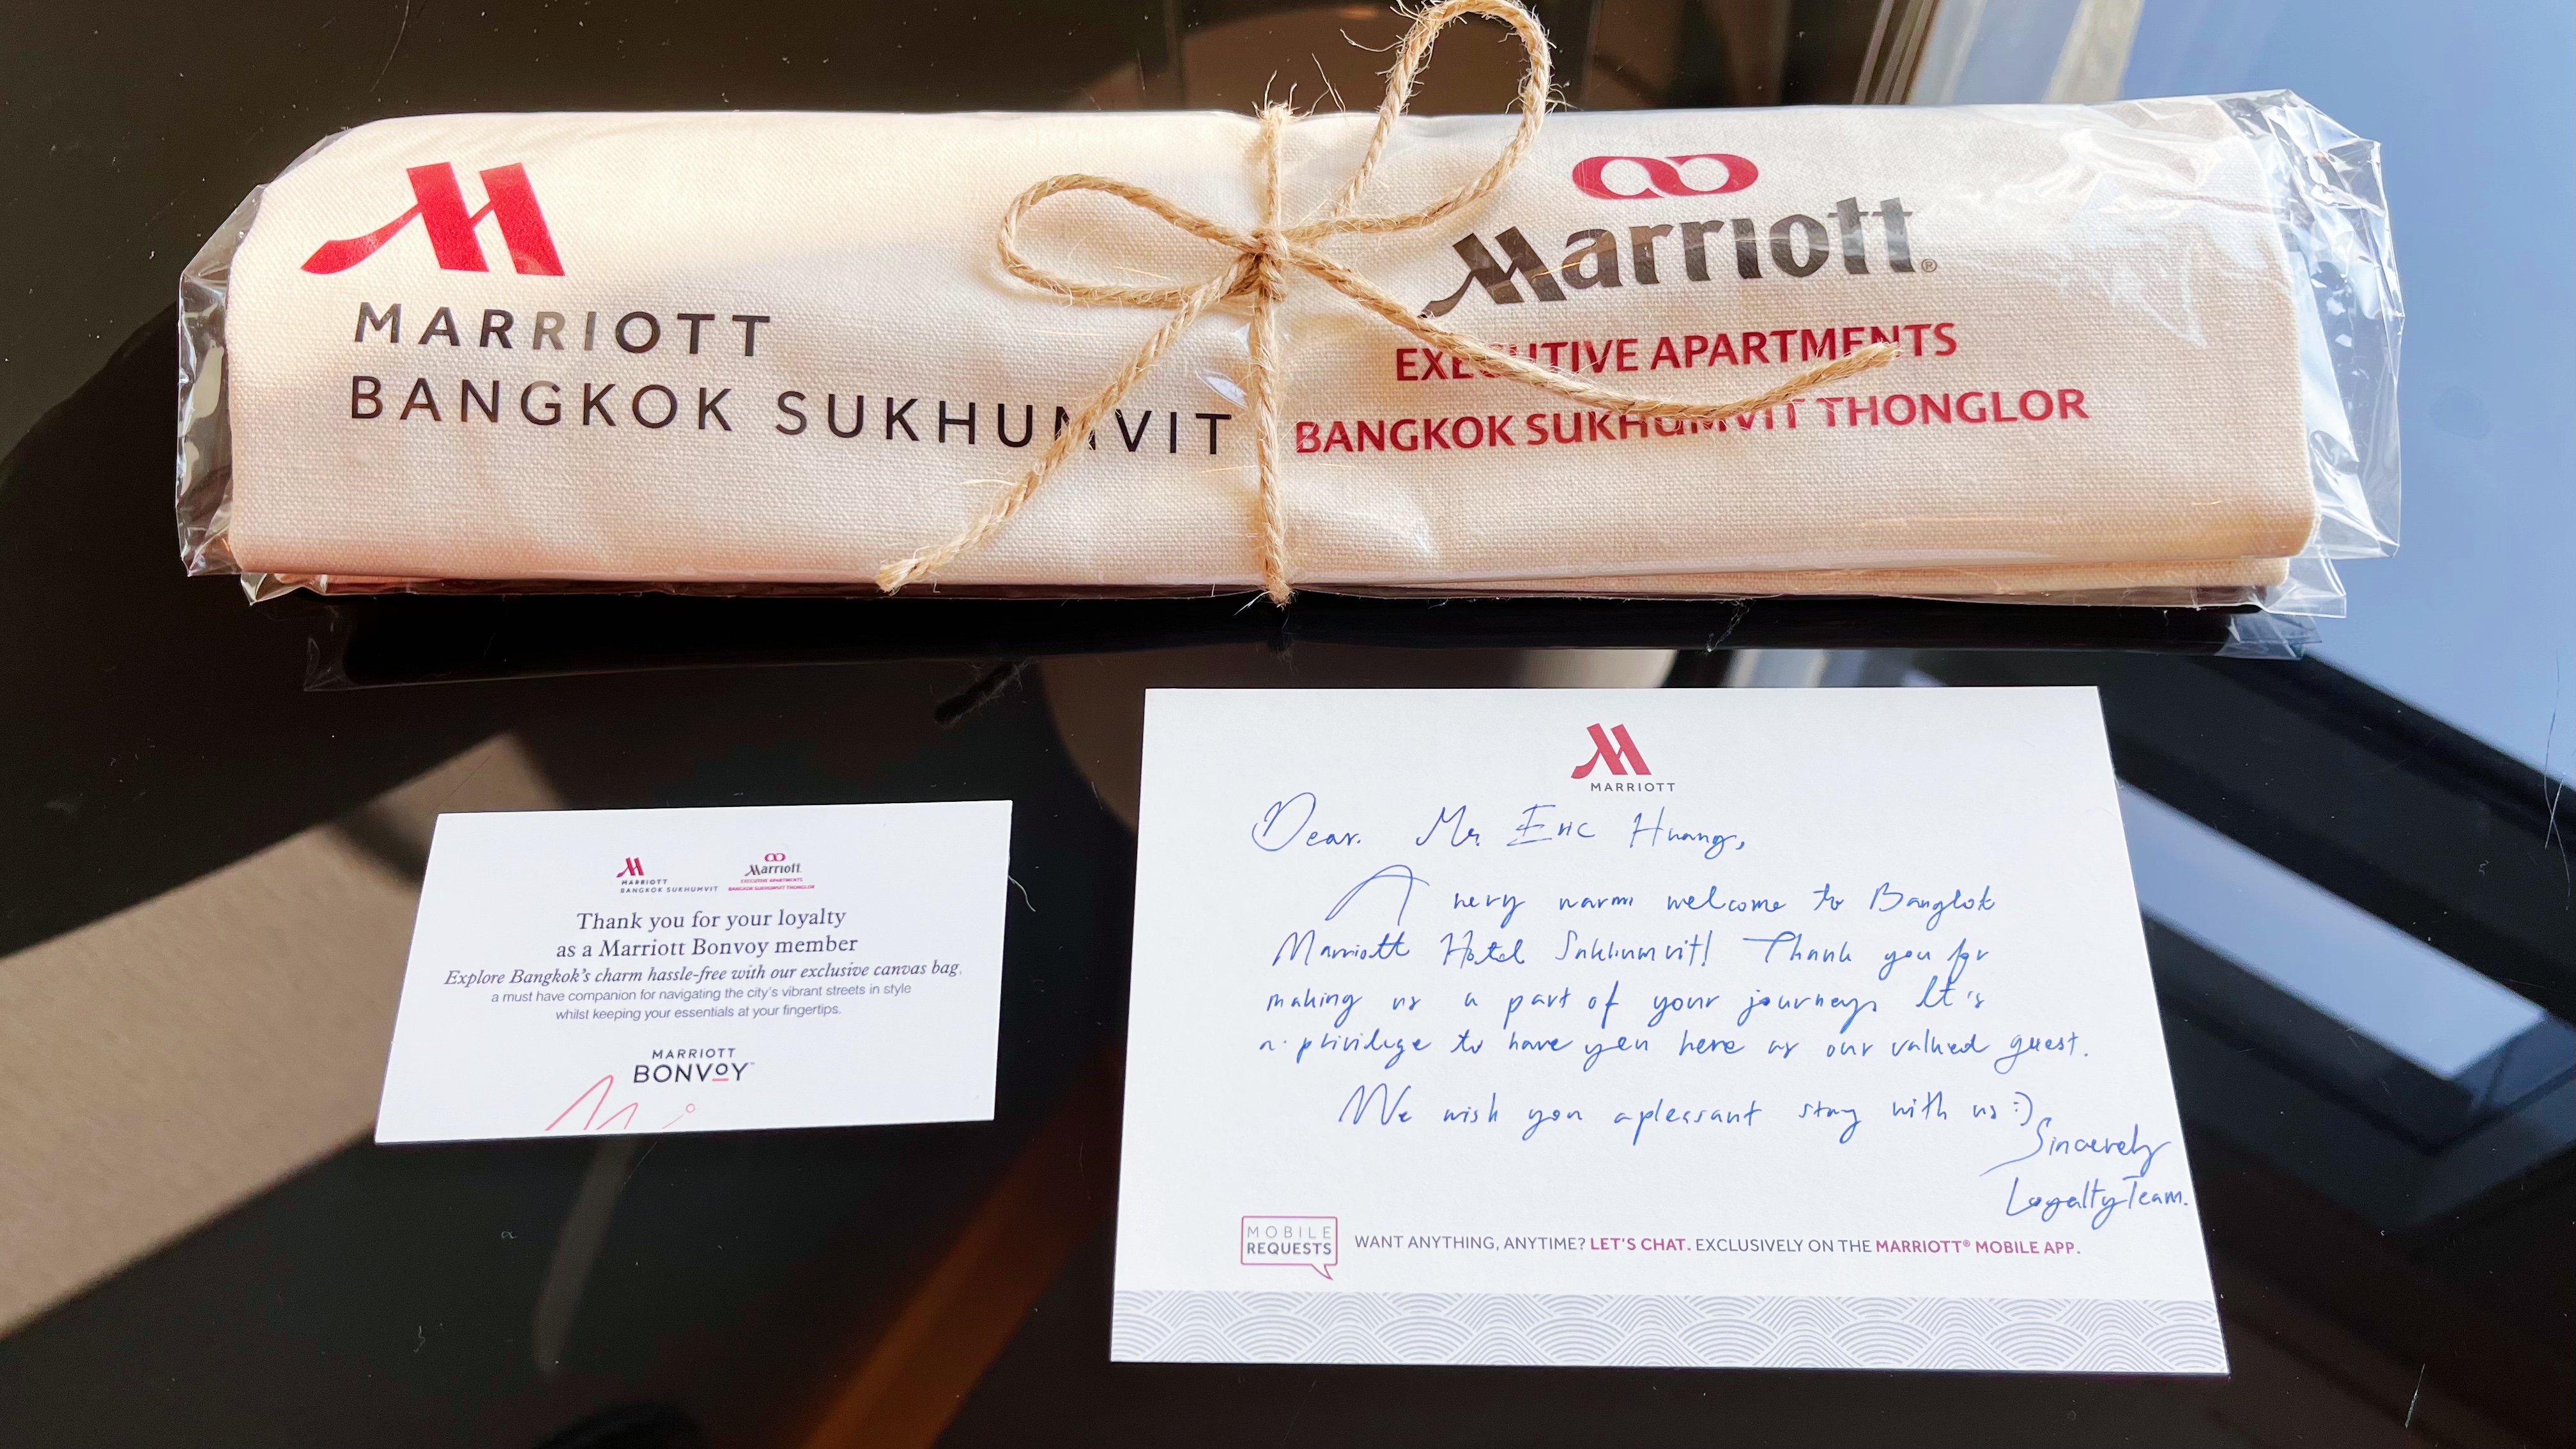 MARRIOTT
BANGKOK SUKHUMVIT
Marriott®
EXECUTIVE APARTMENTS
BANGKOK SUKHUMVIT THONGLOR
MARRIOTT
BANGKOK SUKHUMVIT
Marriott
EXECUTIVE APARTMENTS
BANGKOK SUKHUMVIT THONGLOR
Thank you for your loyalty
as a Marriott Bonvoy member
Explore Bangkok's charm hassle-free with our exclusive canvas bag,
a must have companion for navigating the city's vibrant streets in style
whilst keeping your essentials at your fingertips.
MARRIOTT
BONVOY™
MARRIOTT
Dear. Mr. Eric Huang,
A very warm welcome to Bangkok
Marriott Hotel Sukhumvit! Thank you for
making us a part of your journey. It's
a privilege to have you here as our valued guest.
We wish you a pleasant stay with us :)
Sincerely
Loyalty Team.
MOBILE
REQUESTS
WANT ANYTHING, ANYTIME? LET'S CHAT. EXCLUSIVELY ON THE MARRIOTT® MOBILE APP.